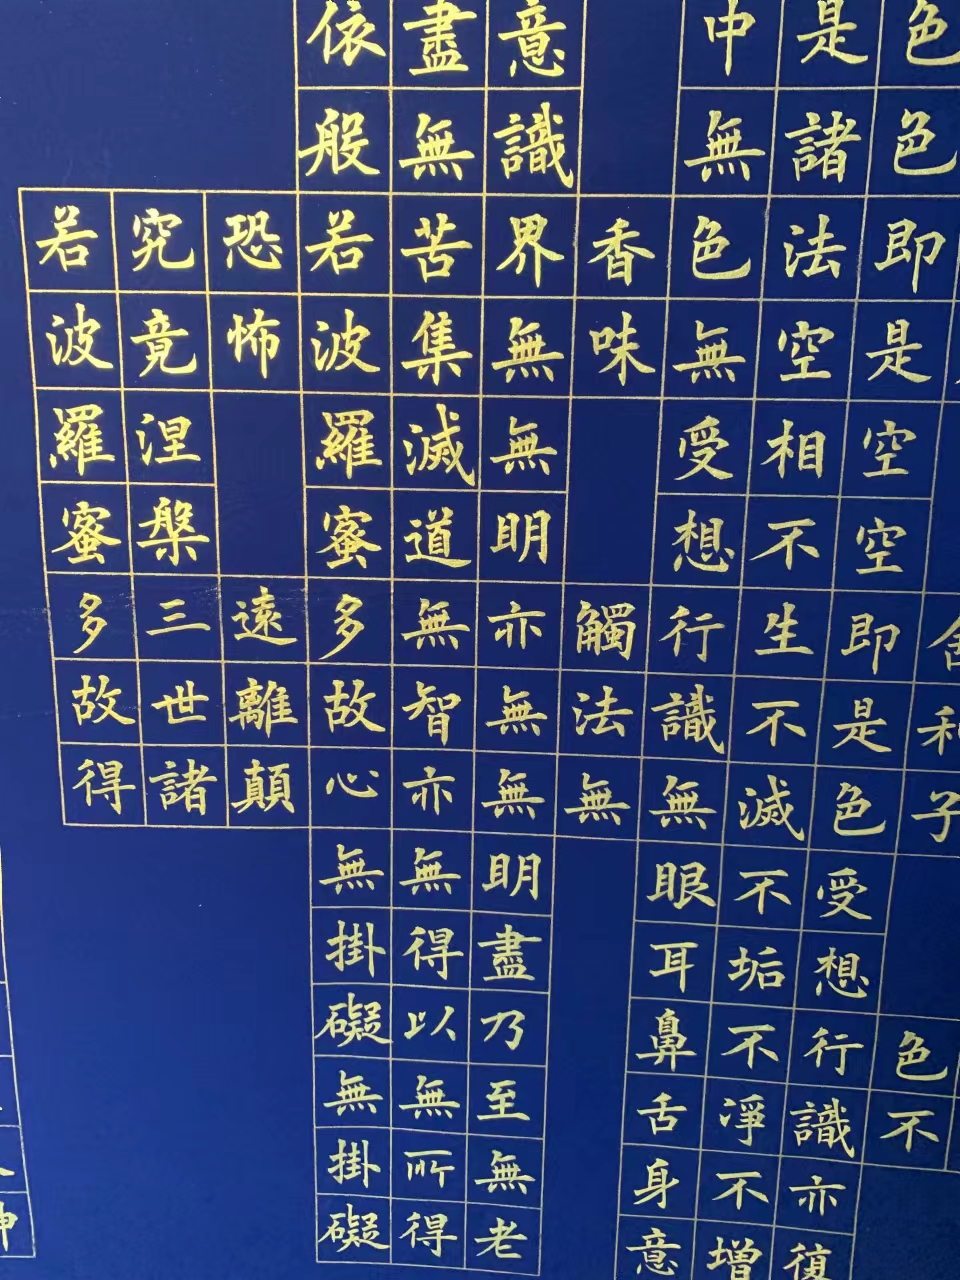 舍利子色不
色色即是空空即是色受想行識亦復
是諸法空相不生不滅不垢不淨不增
中無色無受想行識無眼耳鼻舌身意
香味觸法無
意識界無無明亦無無明盡乃至無老
盡無苦集滅道無智亦無得以無所得
依般若波羅蜜多故心無掛礙無掛礙
恐怖遠離顛
究竟涅槃三世諸
若波羅蜜多故得